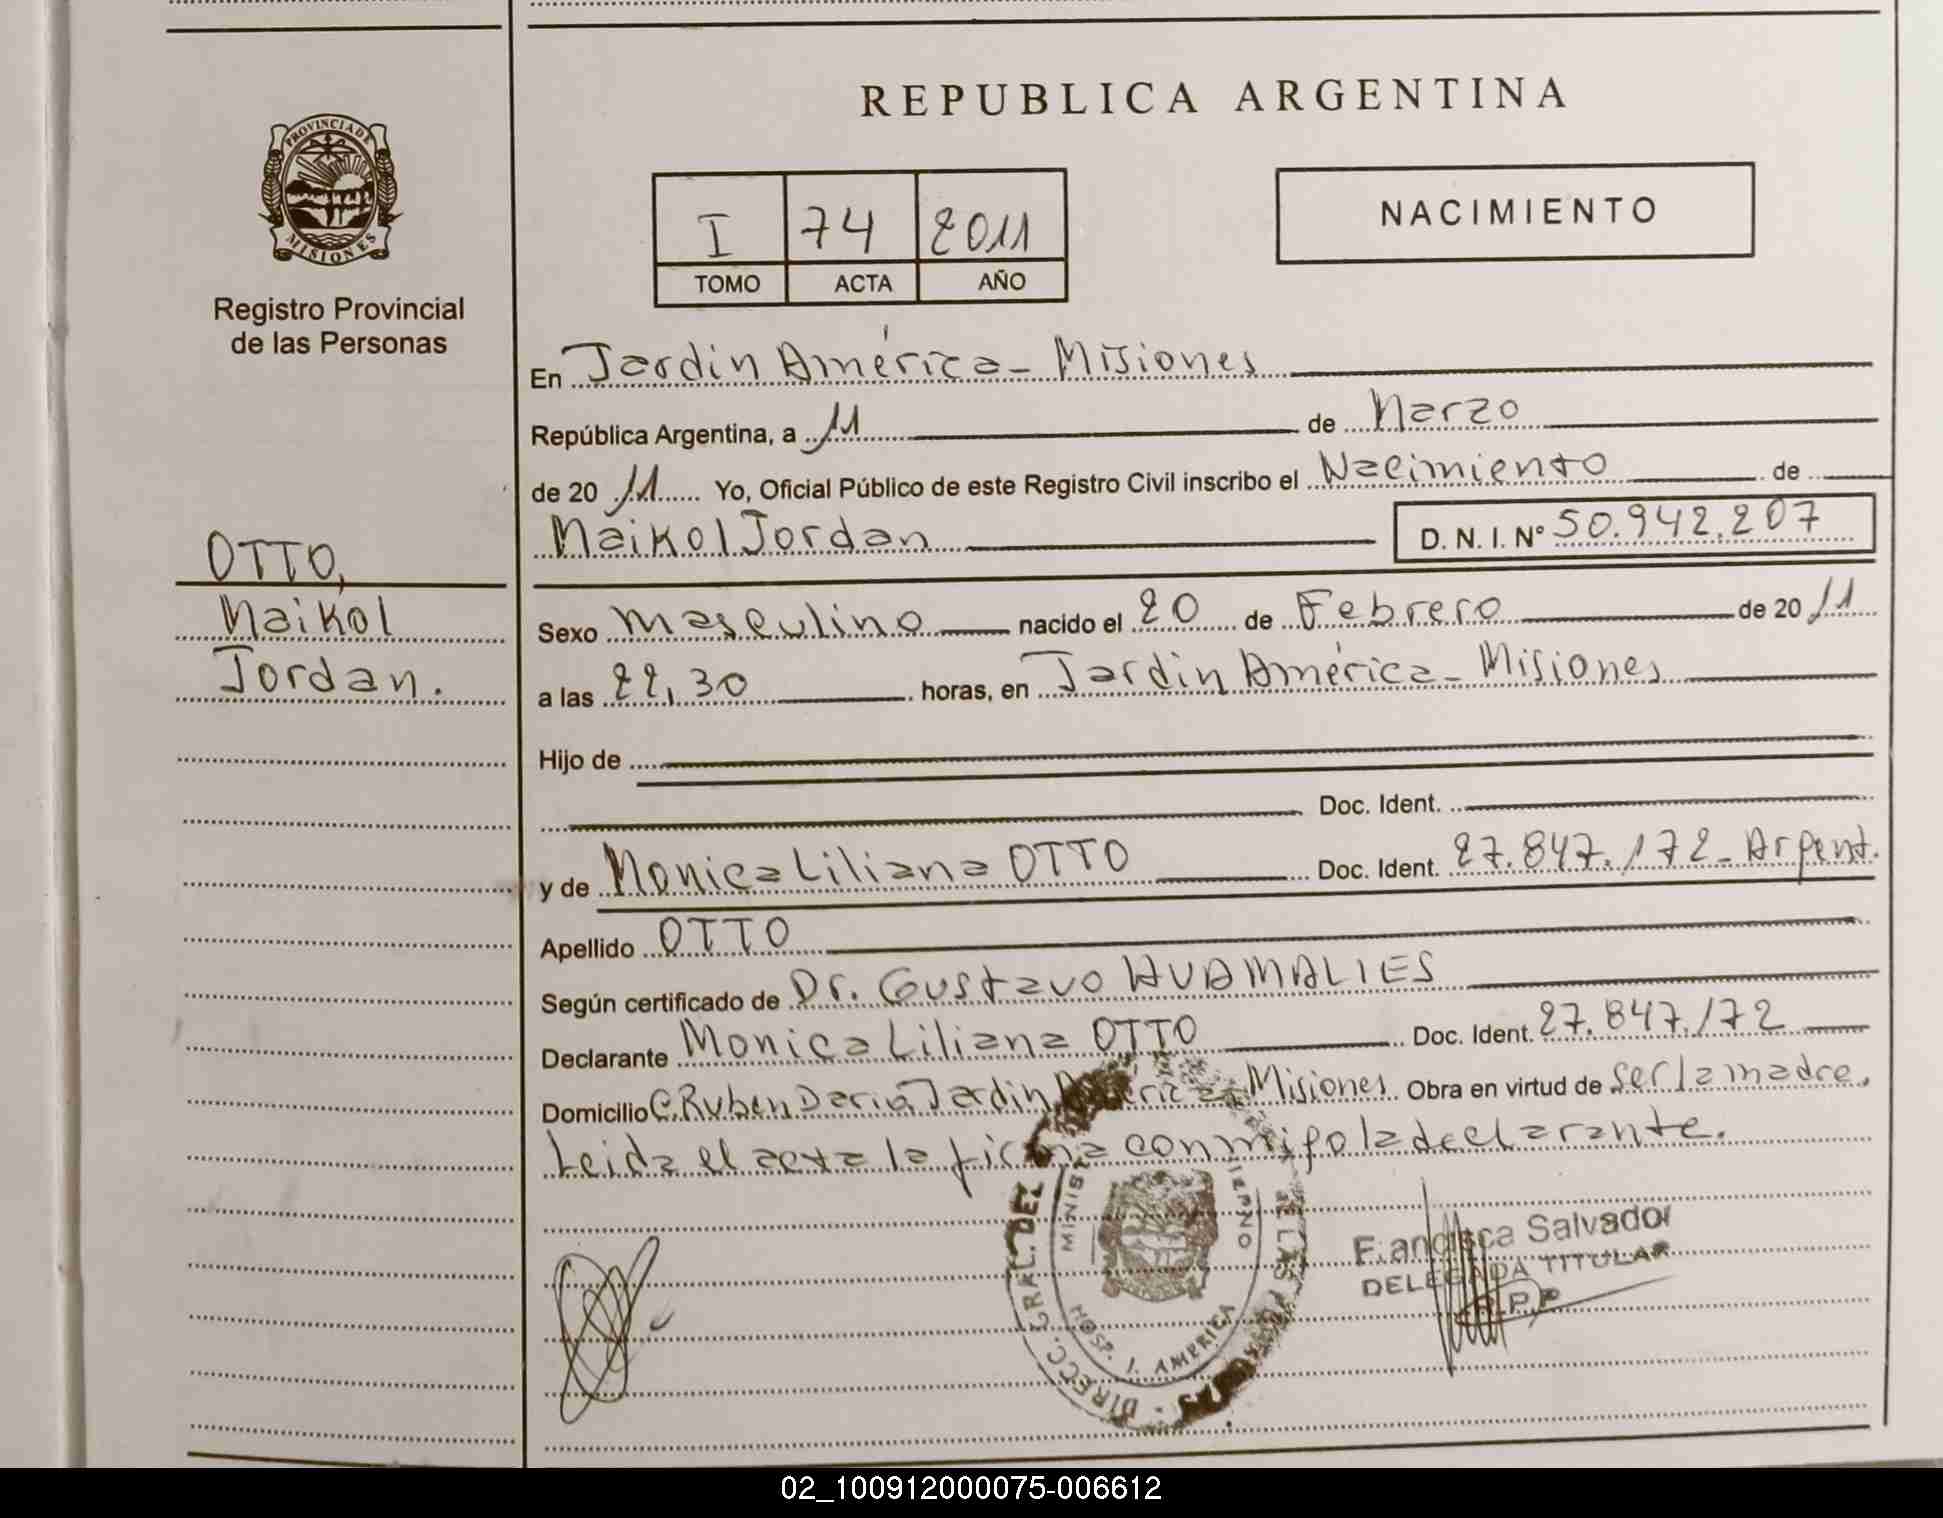 PROVINCIA DE
MISIONES
Registro Provincial
de las Personas
OTTO,
Maikol
Jordan.
REPUBLICA ARGENTINA
I 74 2011
TOMO ACTA AÑO
NACIMIENTO
En Jardin América - Misiones
República Argentina, a 11 de Marzo
de 20 11 Yo, Oficial Público de este Registro Civil inscribo el Nacimiento de
Maikol Jordan D. N. I. Nº 50.942.207
Sexo masculino nacido el 20 de Febrero de 20 11
a las 22,30 horas, en Jardin América - Misiones
Hijo de
Doc. Ident.
y de Monica Liliana OTTO Doc. Ident. 27.847.172 - Argent.
Apellido OTTO
Según certificado de Dr. Gustavo HUAMALIES
Declarante Monica Liliana OTTO Doc. Ident. 27.847.172
Domicilio C. Ruben Dario, Jardin América - Misiones Obra en virtud de ser la madre.
Leida el acta la firma conmigo la declarante.
DIRECC. GRAL. DEL
HOSP. J. AMERICA
Francisca Salvador
DELEGADA TITULAR
R.P.P
02_100912000075-006612